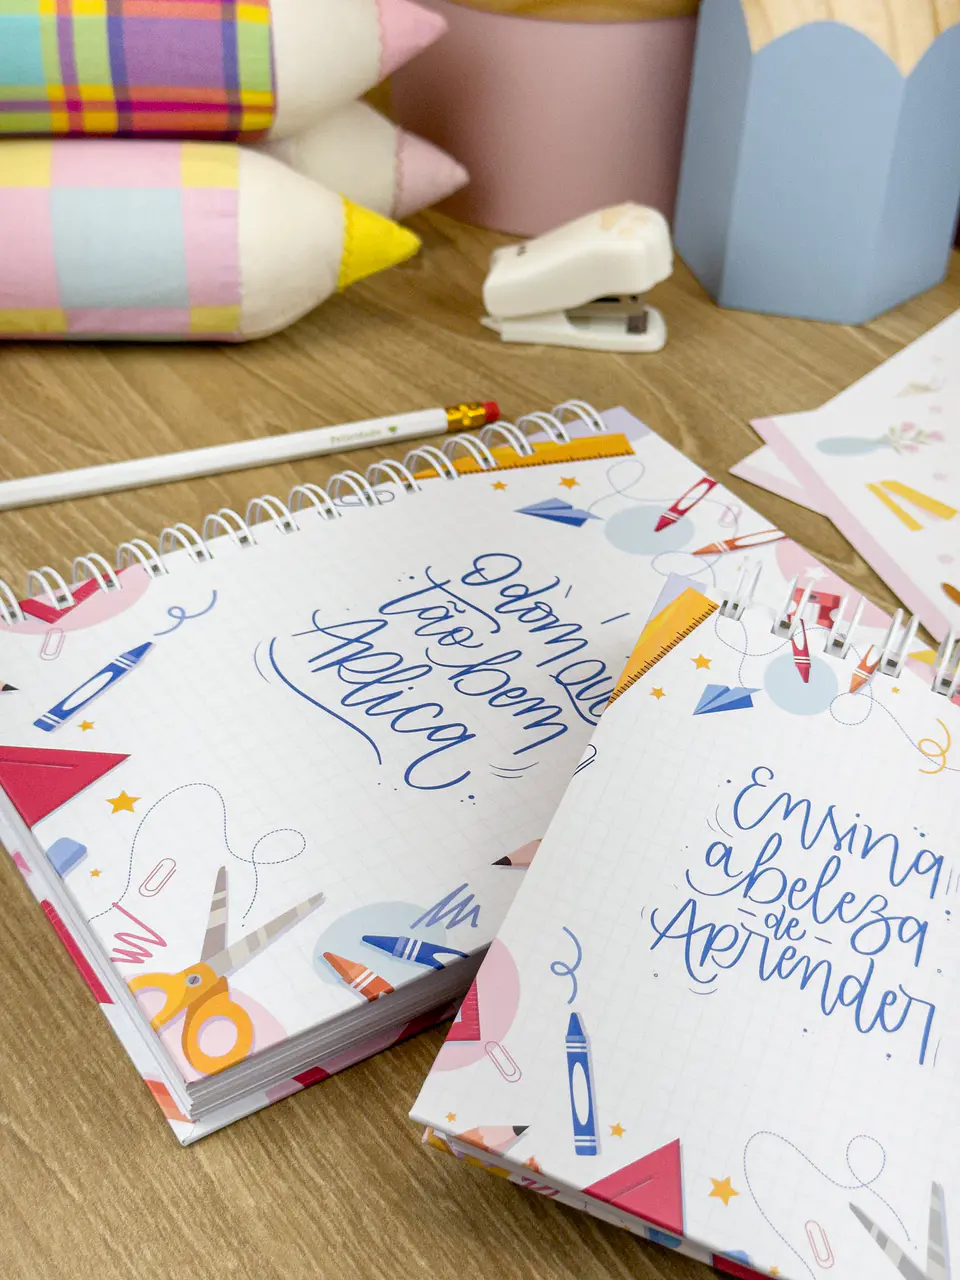 O dom que
tão bem
Aplica
Ensina
a beleza
de
Aprender